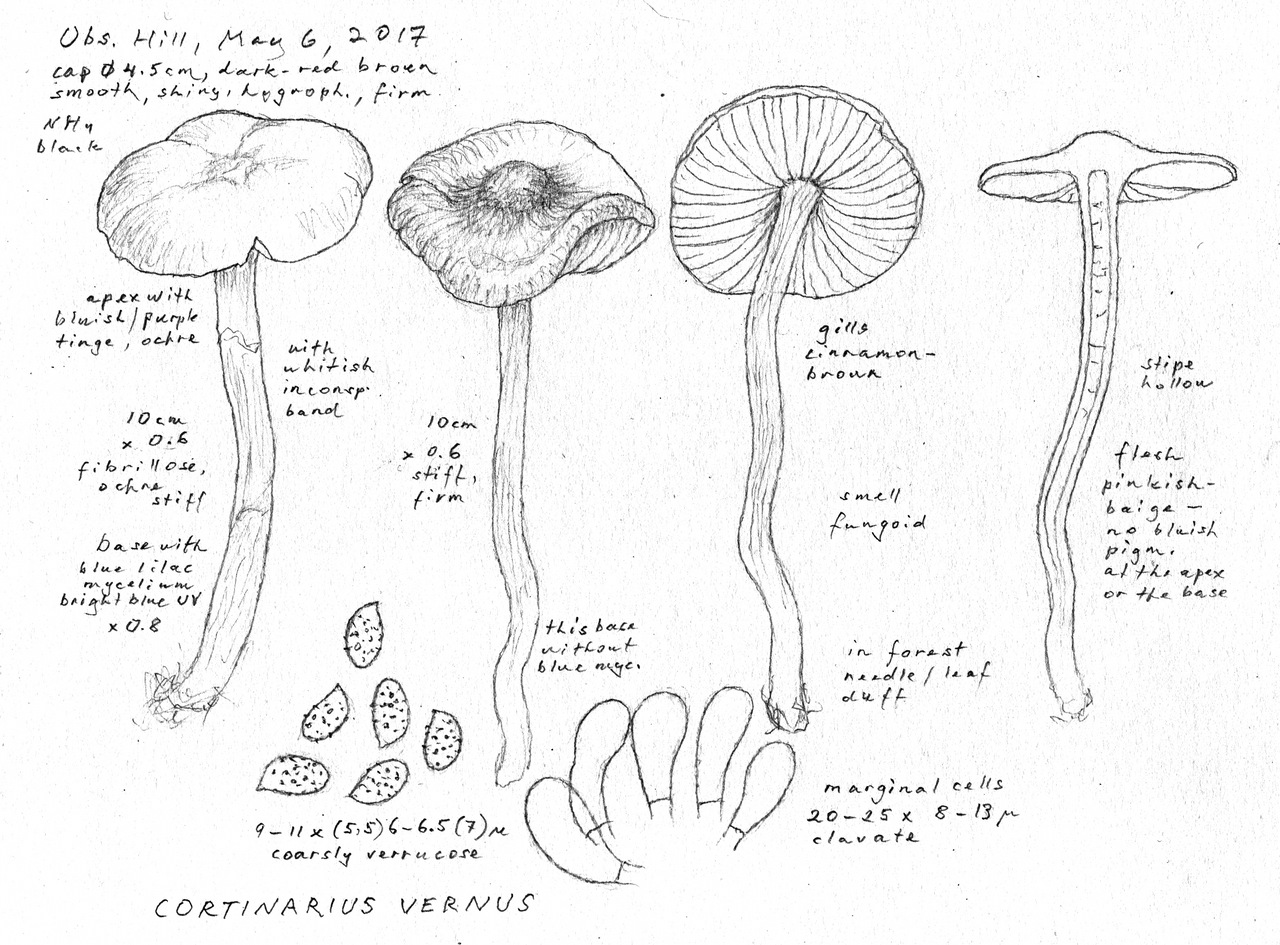 Obs. Hill, May 6, 2017
cap Ø 4.5cm, dark-red brown
smooth, shiny, hygroph., firm
NH4
black
apex with
bluish/purple
tinge, ochre
with
whitish
inconsp.
band
10cm
x 0.6
fibrillose,
ochre
stiff
base with
blue lilac
mycelium
bright blue UV
x 0.8
10cm
x 0.6
stiff,
firm
this base
without
blue myc.
gills
cinnamon-
brown
smell
fungoid
in forest
needle/leaf
duff
stipe
hollow
flesh
pinkish-
baige -
no bluish
pigm.
at the apex
or the base
9-11 x (5,5)6-6.5(7) µ
coarsly verrucose
marginal cells
20-25 x 8-13 µ
clavate
CORTINARIUS VERNUS